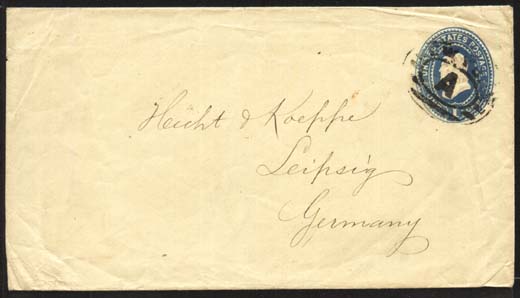 UNITED STATES POSTAGE
A
Hecht & Koeppe
Leipsig
Germany